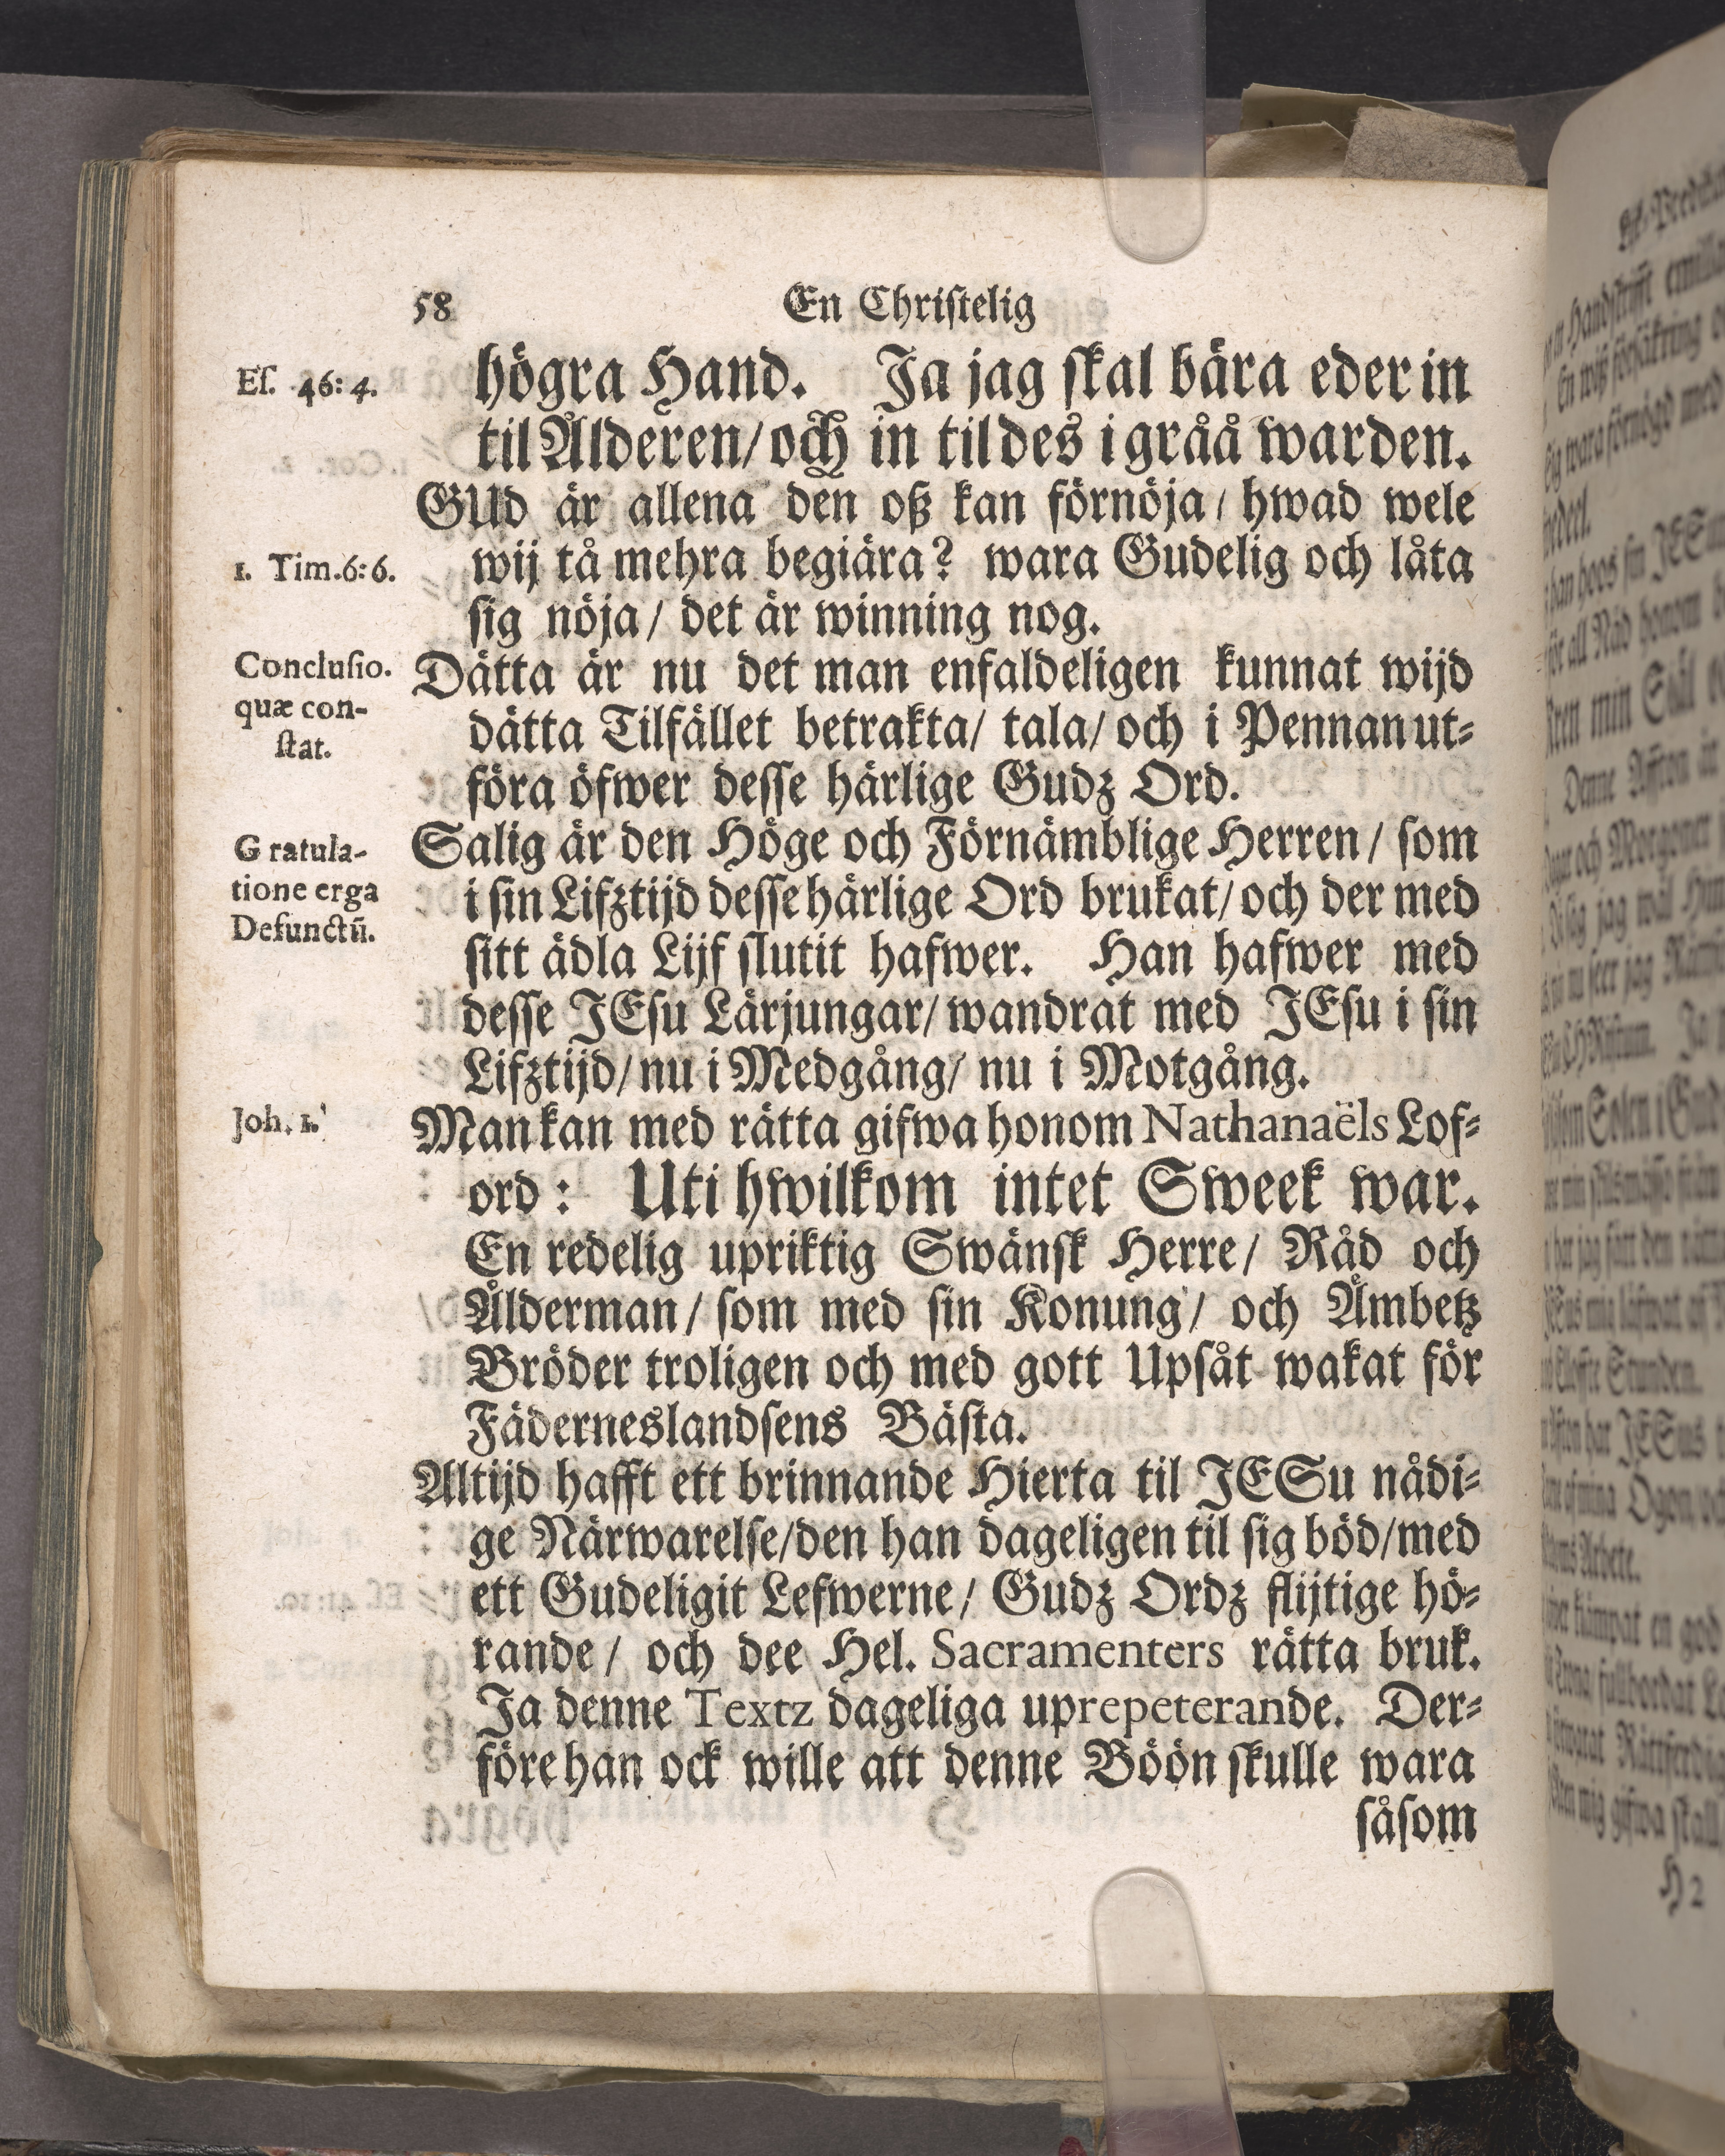 58
En Christelig
Es. 46: 4.
högra Hand. Ja jag skal bära eder in
til Ålderen/och in til des i gråå warden.
GUd är allena den oß kan förnöja/ hwad wele
1. Tim.6:6.
wij tå mehra begiära? wara Gudelig och låta
sig nöja/ det är winning nog.
Conclusio.
quæ con-
stat.
Dätta är nu det man enfaldeligen kunnat wijd
dätta Tilfället betrakta/ tala/ och i Pennan ut-
föra öfwer desse härlige Gudz Ord.
Gratula-
tione erga
Defunctū.
Salig är den Höge och Förnämblige Herren/ som
i sin Lifztijd desse härlige Ord brukat/ och der med
sitt ädla Lijf slutit hafwer. Han hafwer med
desse JEsu Lärjungar/ wandrat med JEsu i sin
Lifztijd/ nu i Medgång/ nu i Motgång.
Joh. 1.
Man kan med rätta gifwa honom Nathanaëls Lof-
ord: Uti hwilkom intet Sweek war.
En redelig upriktig Swänsk Herre/ Råd och
Ålderman/ som med sin Konung/ och Ämbetz
Bröder troligen och med gott Upsåt wakat för
Fäderneslandsens Bästa.
Altijd hafft ett brinnande Hierta til JESu nådi-
ge Närwarelse/den han dageligen til sig böd/med
ett Gudeligit Lefwerne/ Gudz Ordz flijtige hö-
rande/ och dee Hel. Sacramenters rätta bruk.
Ja denne Textz dageliga uprepeterande. Der-
före han ock wille att denne Böön skulle wara
såsom
H 2